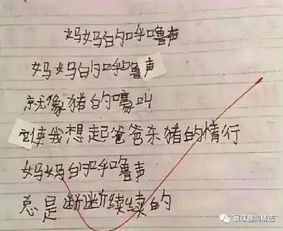 妈妈的呼噜声
妈妈的呼噜声
就像猪的嚎叫
使我想起爸爸杀猪的情行
妈妈的呼噜声
总是断断续续的